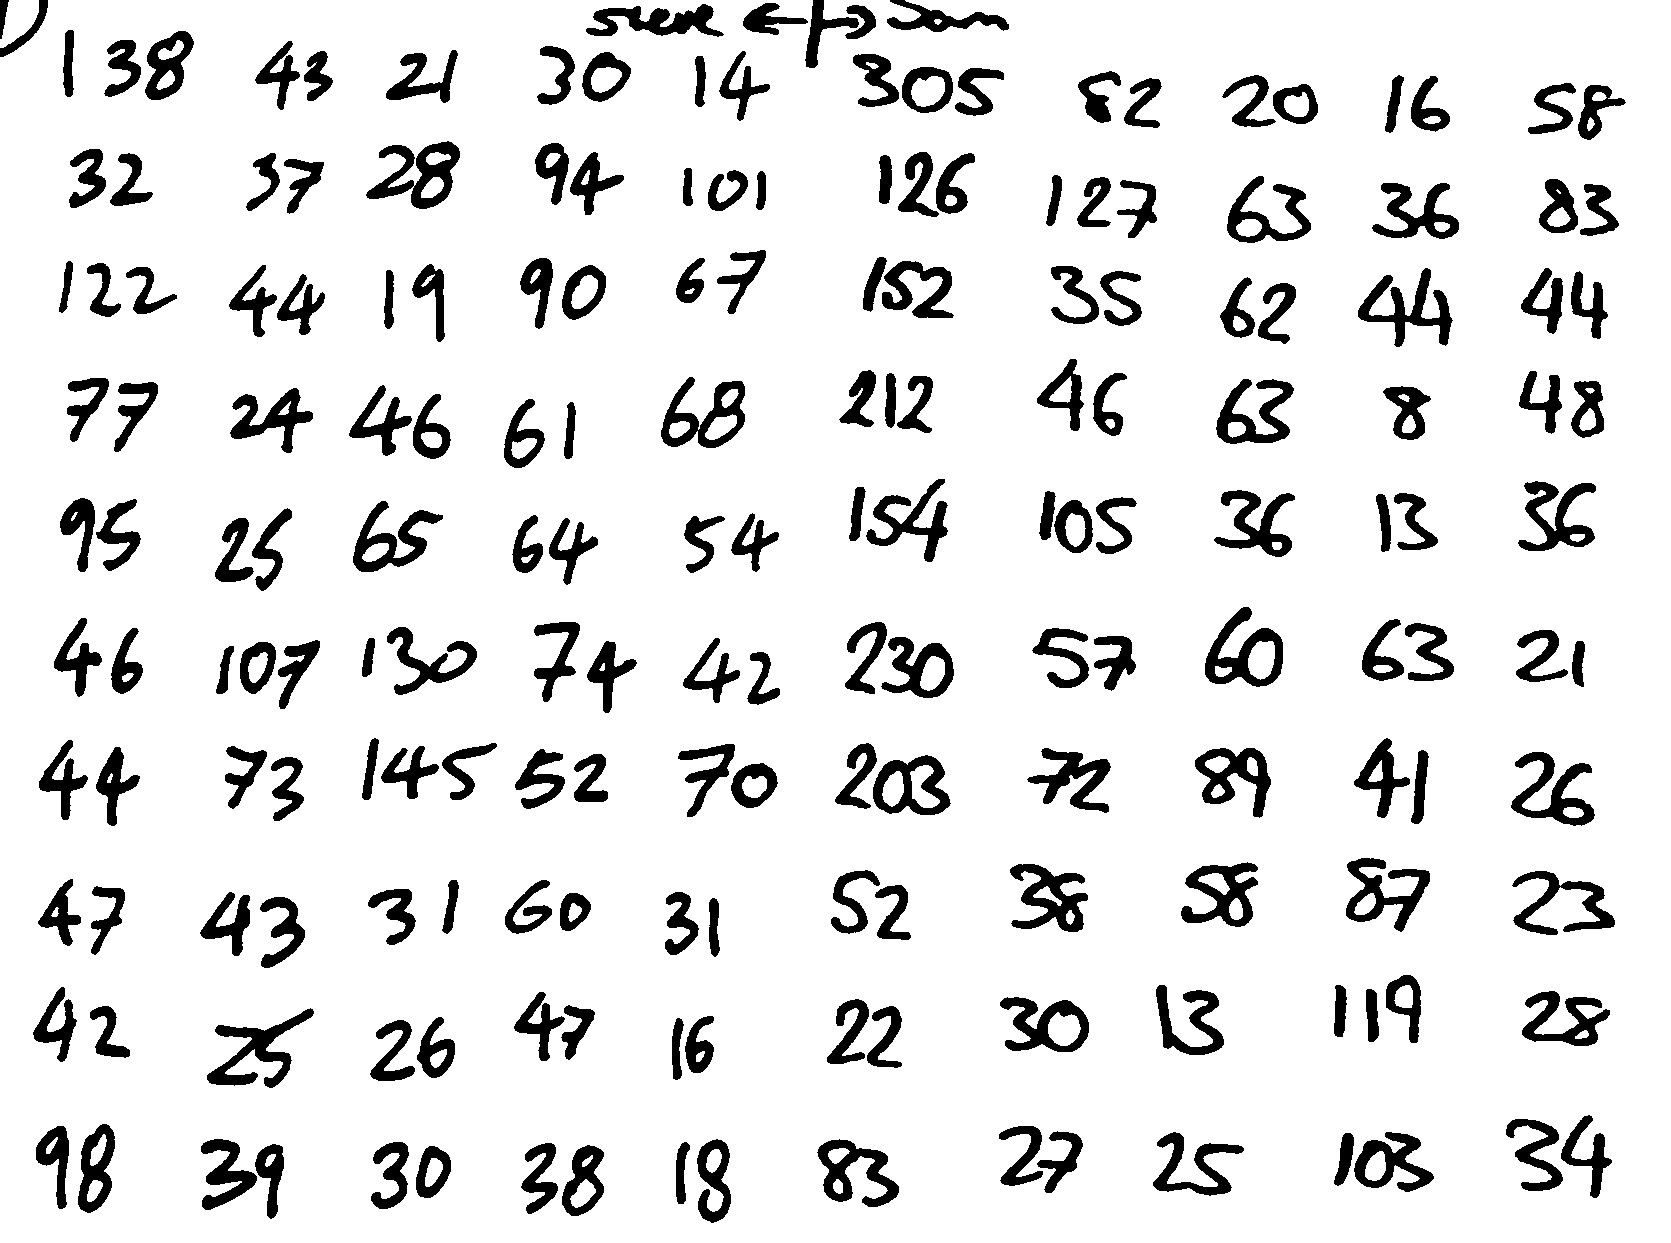 steve ← | → Sam
138 43 21 30 14 305 82 20 16 58
32 37 28 94 101 126 127 63 36 83
122 44 19 90 67 152 35 62 44 44
77 24 46 61 68 212 46 63 8 48
95 25 65 64 54 154 105 36 13 36
46 107 130 74 42 230 57 60 63 21
44 73 145 52 70 203 72 89 41 26
47 43 31 60 31 52 38 58 87 23
42 25 26 47 16 22 30 13 119 28
98 39 30 38 18 83 27 25 103 34